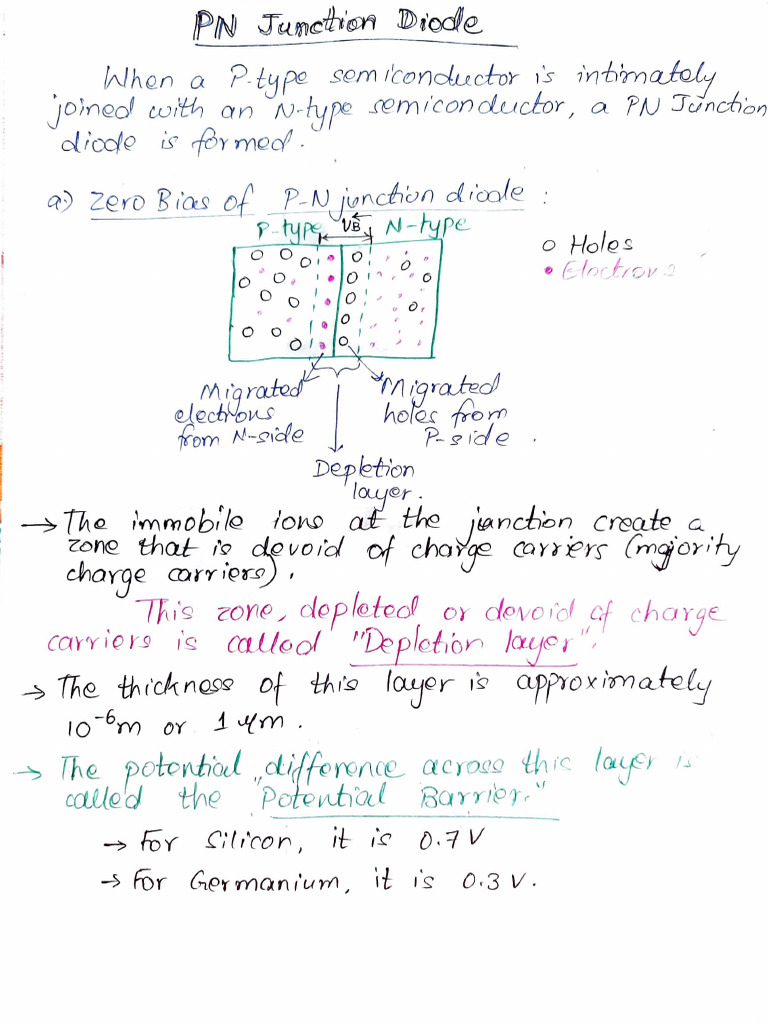 PN Junction Diode
When a P-type semiconductor is intimately
joined with an N-type semiconductor, a PN Junction
diode is formed.
a) Zero Bias of P-N junction diode :
P-type VB N-type
o Holes
• Electrons
Migrated
electrons
from N-side
Migrated
holes from
P-side.
Depletion
layer.
→ The immobile ions at the junction create a
zone that is devoid of charge carriers (majority
charge carriers).
This zone, depleted or devoid of charge
carriers is called "Depletion layer".
→ The thickness of this layer is approximately
10⁻⁶m or 1 μm.
→ The potential difference across this layer is
called the "Potential Barrier."
→ For Silicon, it is 0.7 V
→ For Germanium, it is 0.3 V.